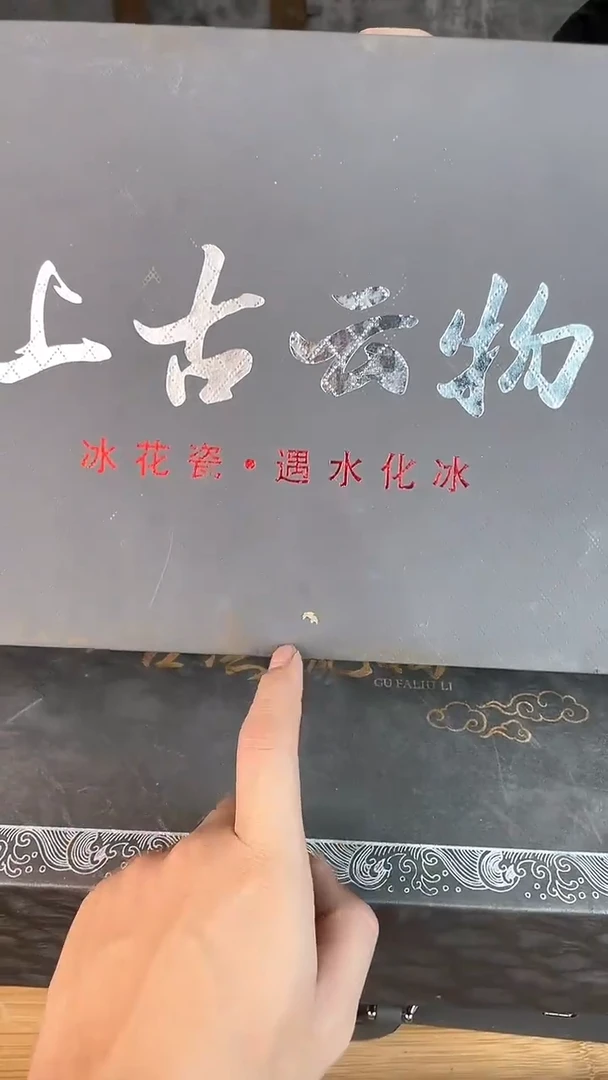 上古云物
冰花瓷·遇水化冰
GU FALIU LI